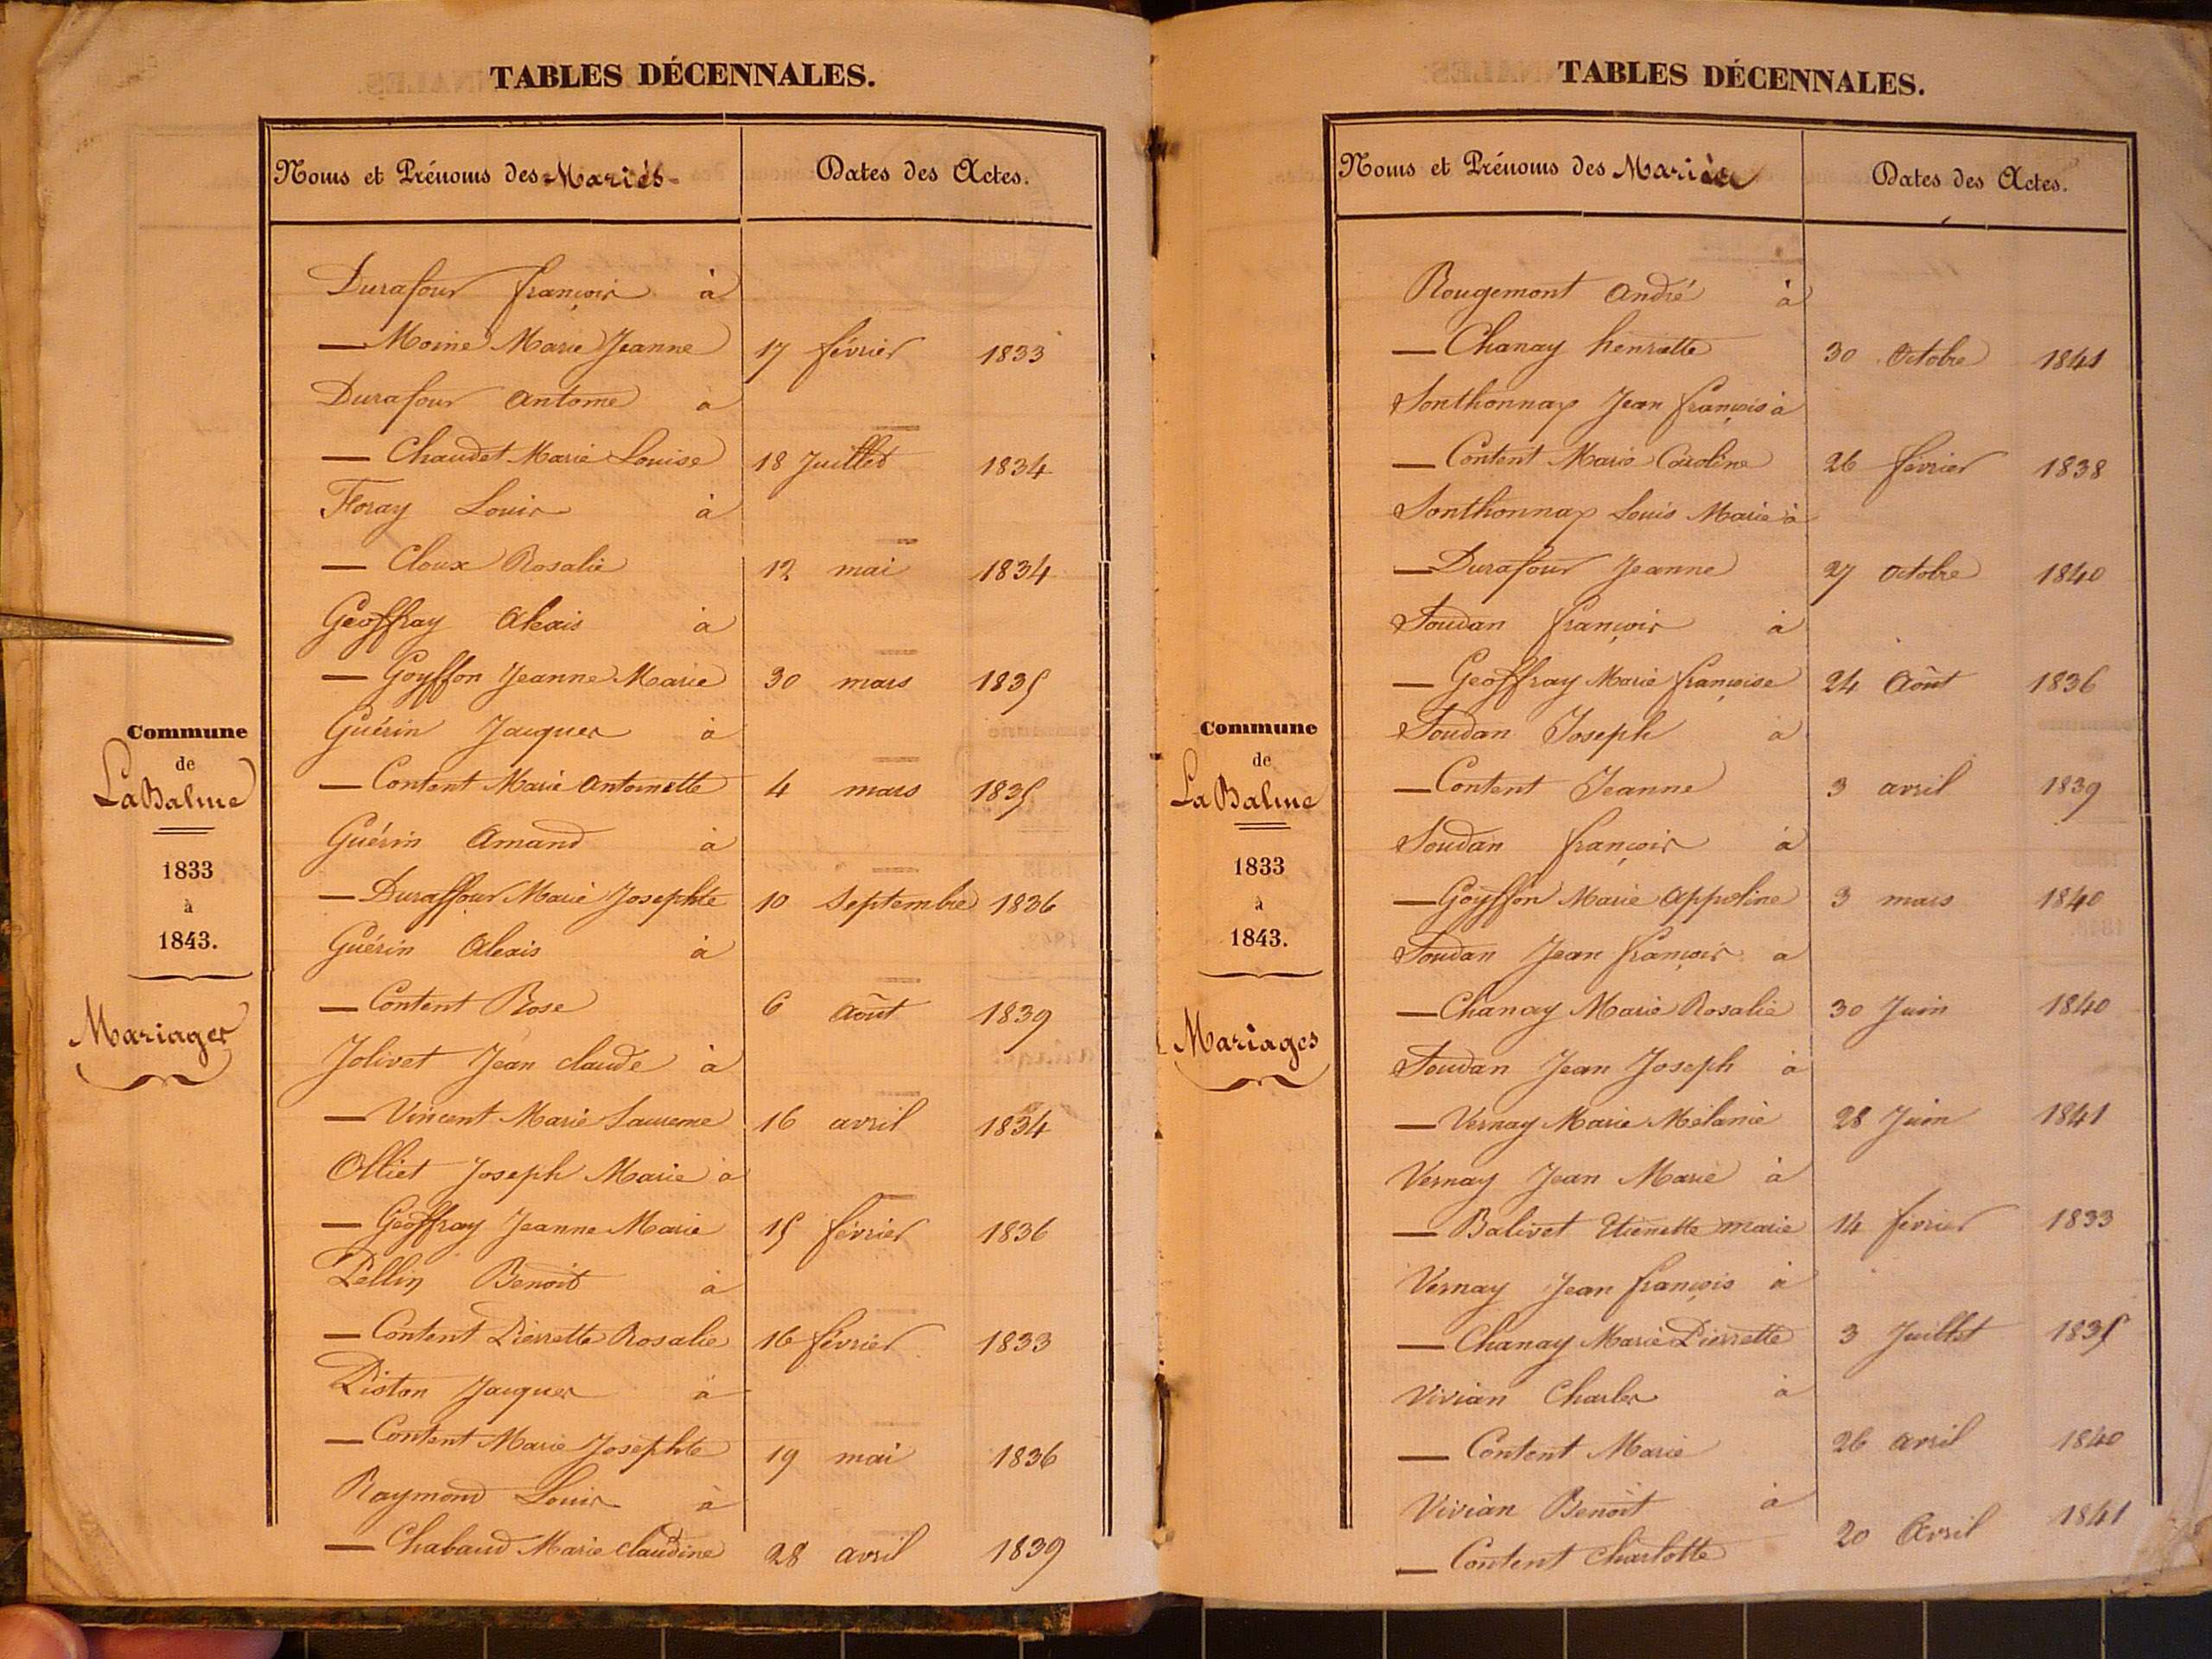 TABLES DÉCENNALES.
Noms et Prénoms des Mariés
Dates des Actes.
Commune
de
La Balme
1833
à
1843.
Mariages
Durafour françois à
— Moine Marie Jeanne 17 février 1833
Durafour Antoine à
— Chaudet Marie Louise 18 Juillet 1834
Floray Louis à
— Cloux Rosalie 12 mai 1834
Geoffray Alexis à
— Goyffon Jeanne Marie 30 mars 1835
Guérin Jacques à
— Content Marie Antoinette 4 mars 1835
Guérin Amand à
— Duraffour Marie Josephte 10 Septembre 1836
Guérin Alexis à
— Content Rose 6 Août 1839
Jolivet Jean claude à
— Vincent Marie Laurence 16 avril 1834
Olliet Joseph Marie à
— Geoffray Jeanne Marie 15 février 1836
Pellin Benoit à
— Content Pierrette Rosalie 16 février 1833
Piston Jacques à
— Content Marie Josephte 19 mai 1836
Raymond Louis à
— Chabaud Marie claudine 28 avril 1839
TABLES DÉCENNALES.
Noms et Prénoms des Mariés
Dates des Actes.
Commune
de
La Balme
1833
à
1843.
Mariages
Rougemont André à
— Chanay henriette 30 Octobre 1841
Sonthonnax Jean françois à
— Content Marie Caroline 26 février 1838
Sonthonnax Louis Marie à
— Durafour Jeanne 27 Octobre 1840
Soudan françois à
— Geoffray Marie françoise 24 Août 1836
Soudan Joseph à
— Content Jeanne 3 avril 1839
Soudan françois à
— Goyffon Marie Appoline 3 mars 1840
Soudan Jean françois à
— Chanay Marie Rosalie 30 Juin 1840
Soudan Jean Joseph à
— Vernay Marie Mélanie 28 Juin 1841
Vernay Jean Marie à
— Balivet Etienette marie 14 février 1833
Vernay Jean françois à
— Chanay Marie Pierrette 3 Juillet 1835
Vivian Charles à
— Content Marie 26 avril 1840
Vivian Benoit à
— Content Charlotte 20 Avril 1841